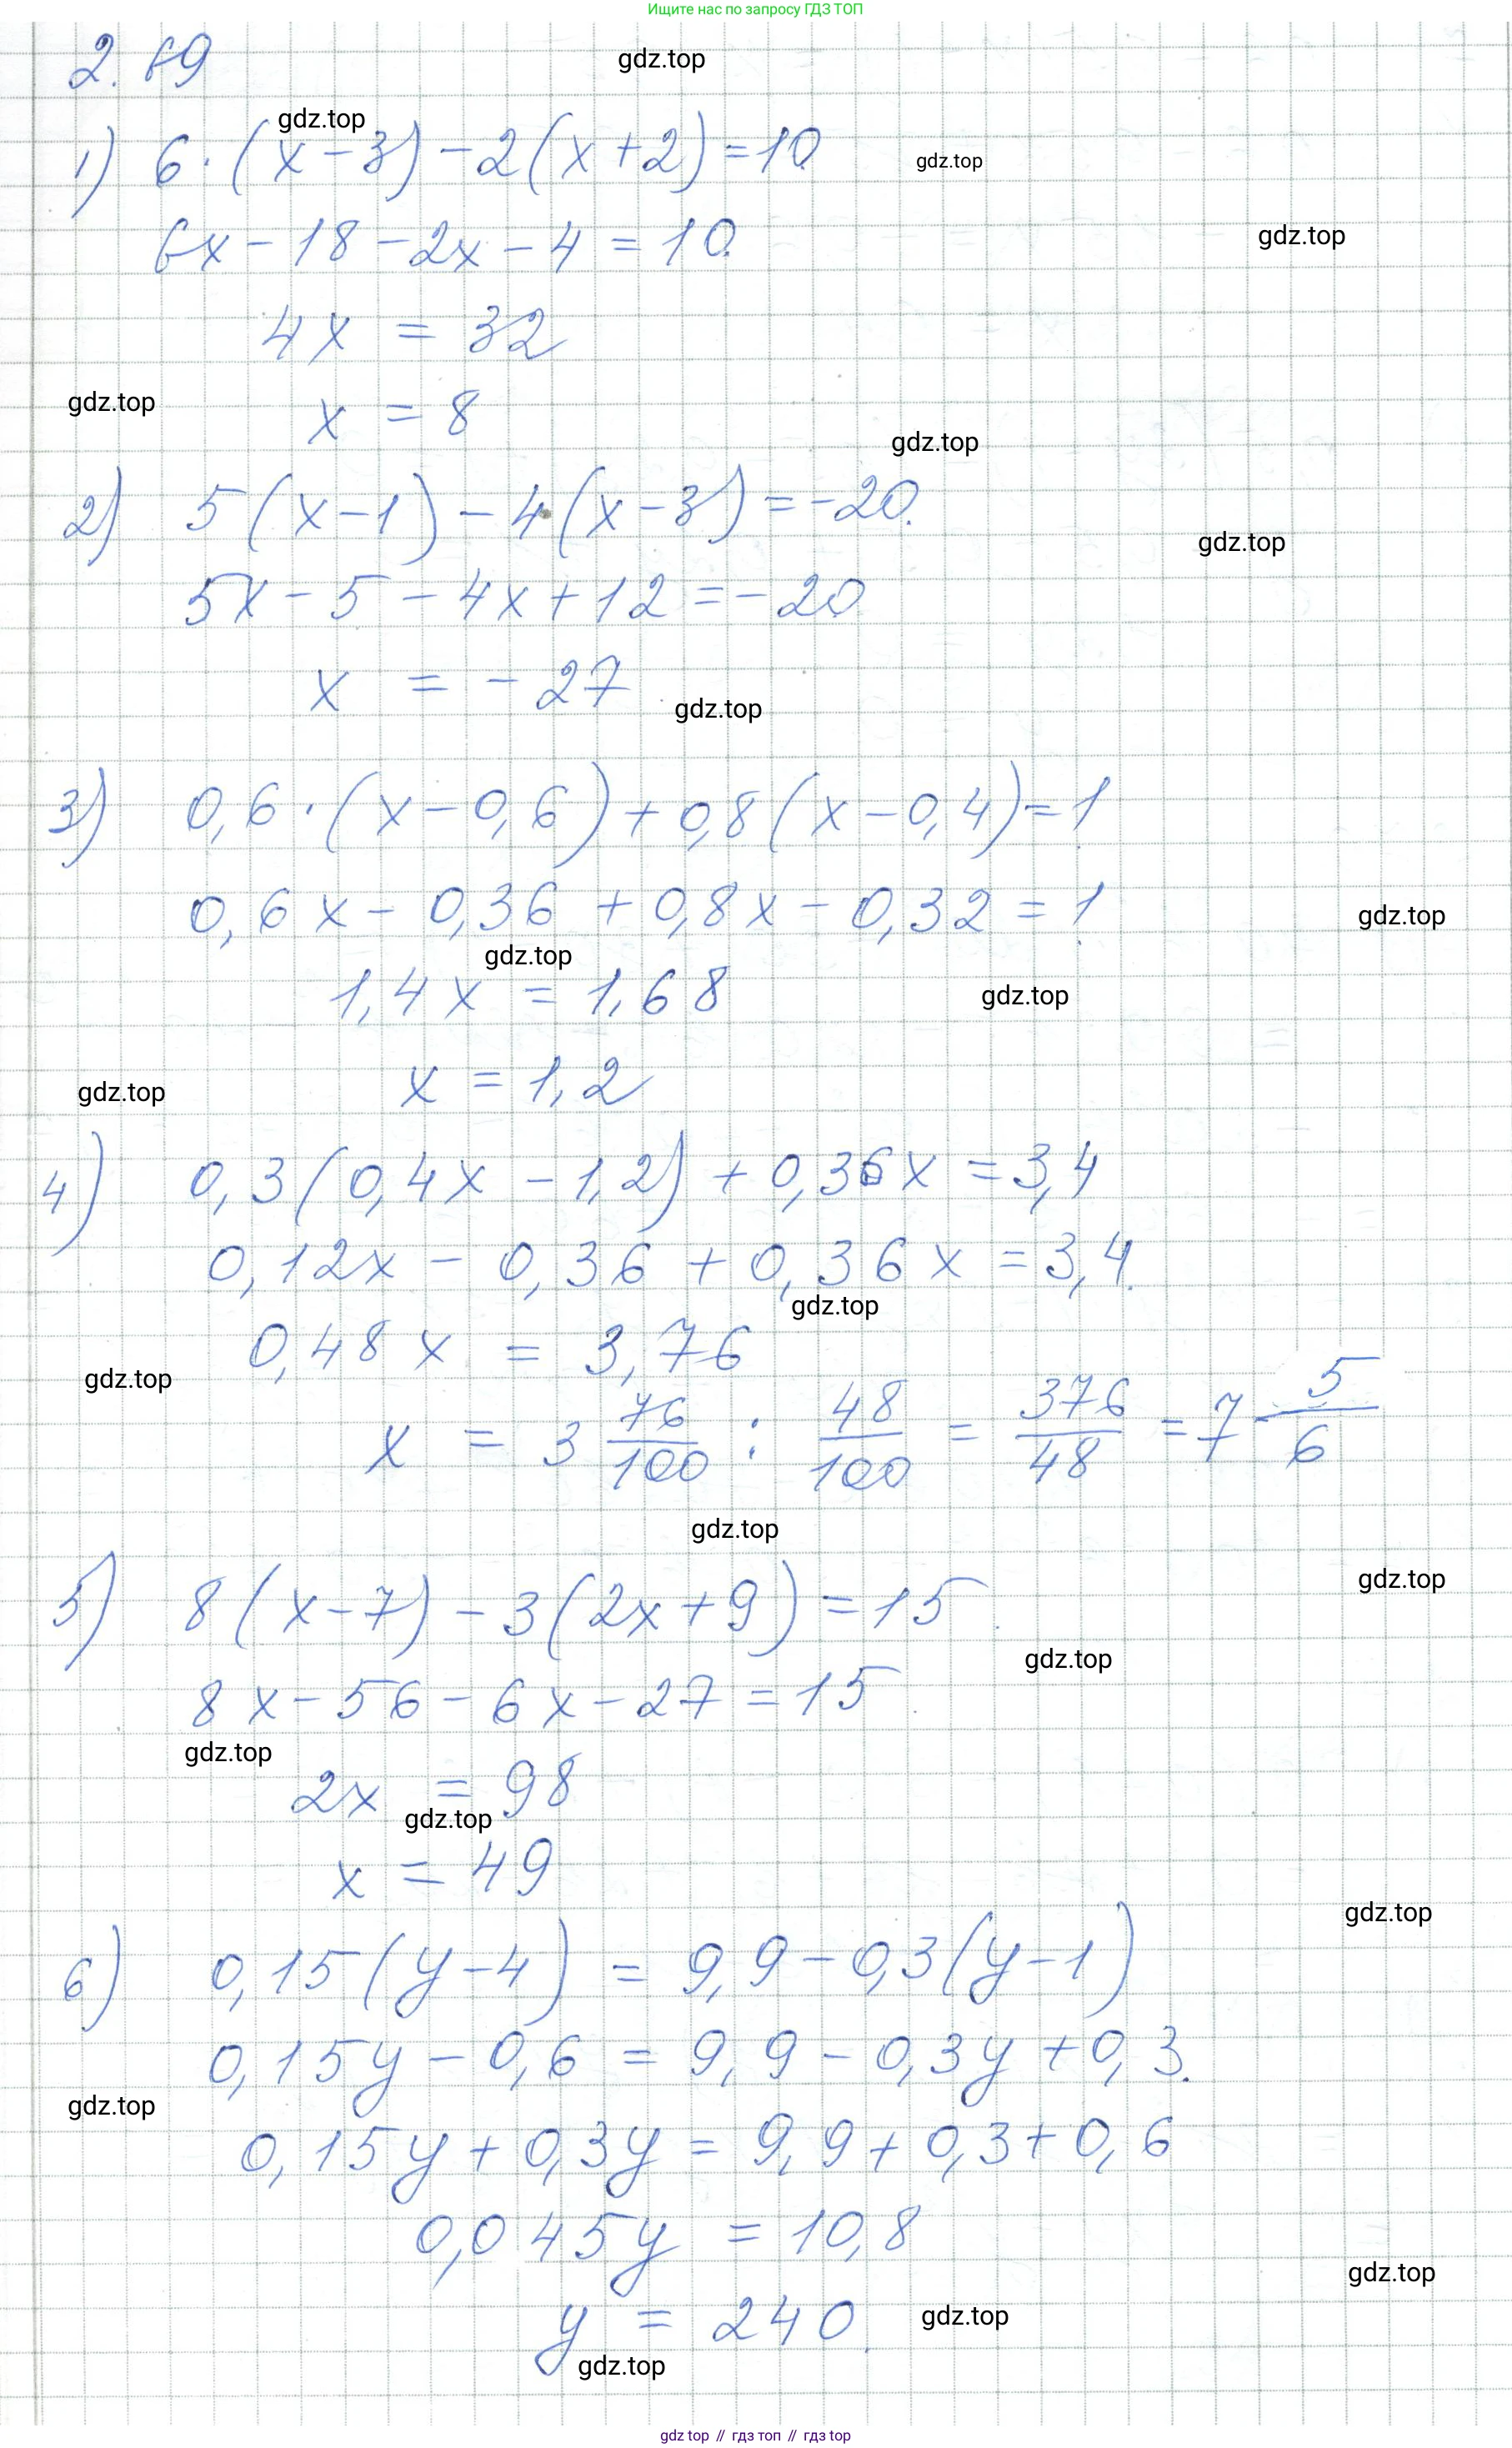 Ищите нас по запросу ГДЗ ТОП
2.69
gdz.top
gdz.top
1) 6·(x-3)-2(x+2)=10
gdz.top
6x-18-2x-4=10
gdz.top
4x=32
gdz.top
x=8
gdz.top
2) 5(x-1)-4(x-3)=-20
gdz.top
5x-5-4x+12=-20
x=-27
gdz.top
3) 0,6·(x-0,6)+0,8(x-0,4)=1
0,6x-0,36+0,8x-0,32=1
gdz.top
gdz.top
1,4x=1,68
gdz.top
x=1,2
gdz.top
4) 0,3(0,4x-1,2)+0,36x=3,4
0,12x-0,36+0,36x=3,4
gdz.top
0,48x=3,76
gdz.top
x=3 76/100 : 48/100 = 376/48 = 7 5/6
gdz.top
gdz.top
5) 8(x-7)-3(2x+9)=15
gdz.top
8x-56-6x-27=15
gdz.top
2x=98
gdz.top
x=49
gdz.top
6) 0,15(y-4)=9,9-0,3(y-1)
0,15y-0,6=9,9-0,3y+0,3
gdz.top
0,15y+0,3y=9,9+0,3+0,6
0,045y=10,8
gdz.top
y=240
gdz.top
gdz.top
gdz top // гдз топ // гдз top